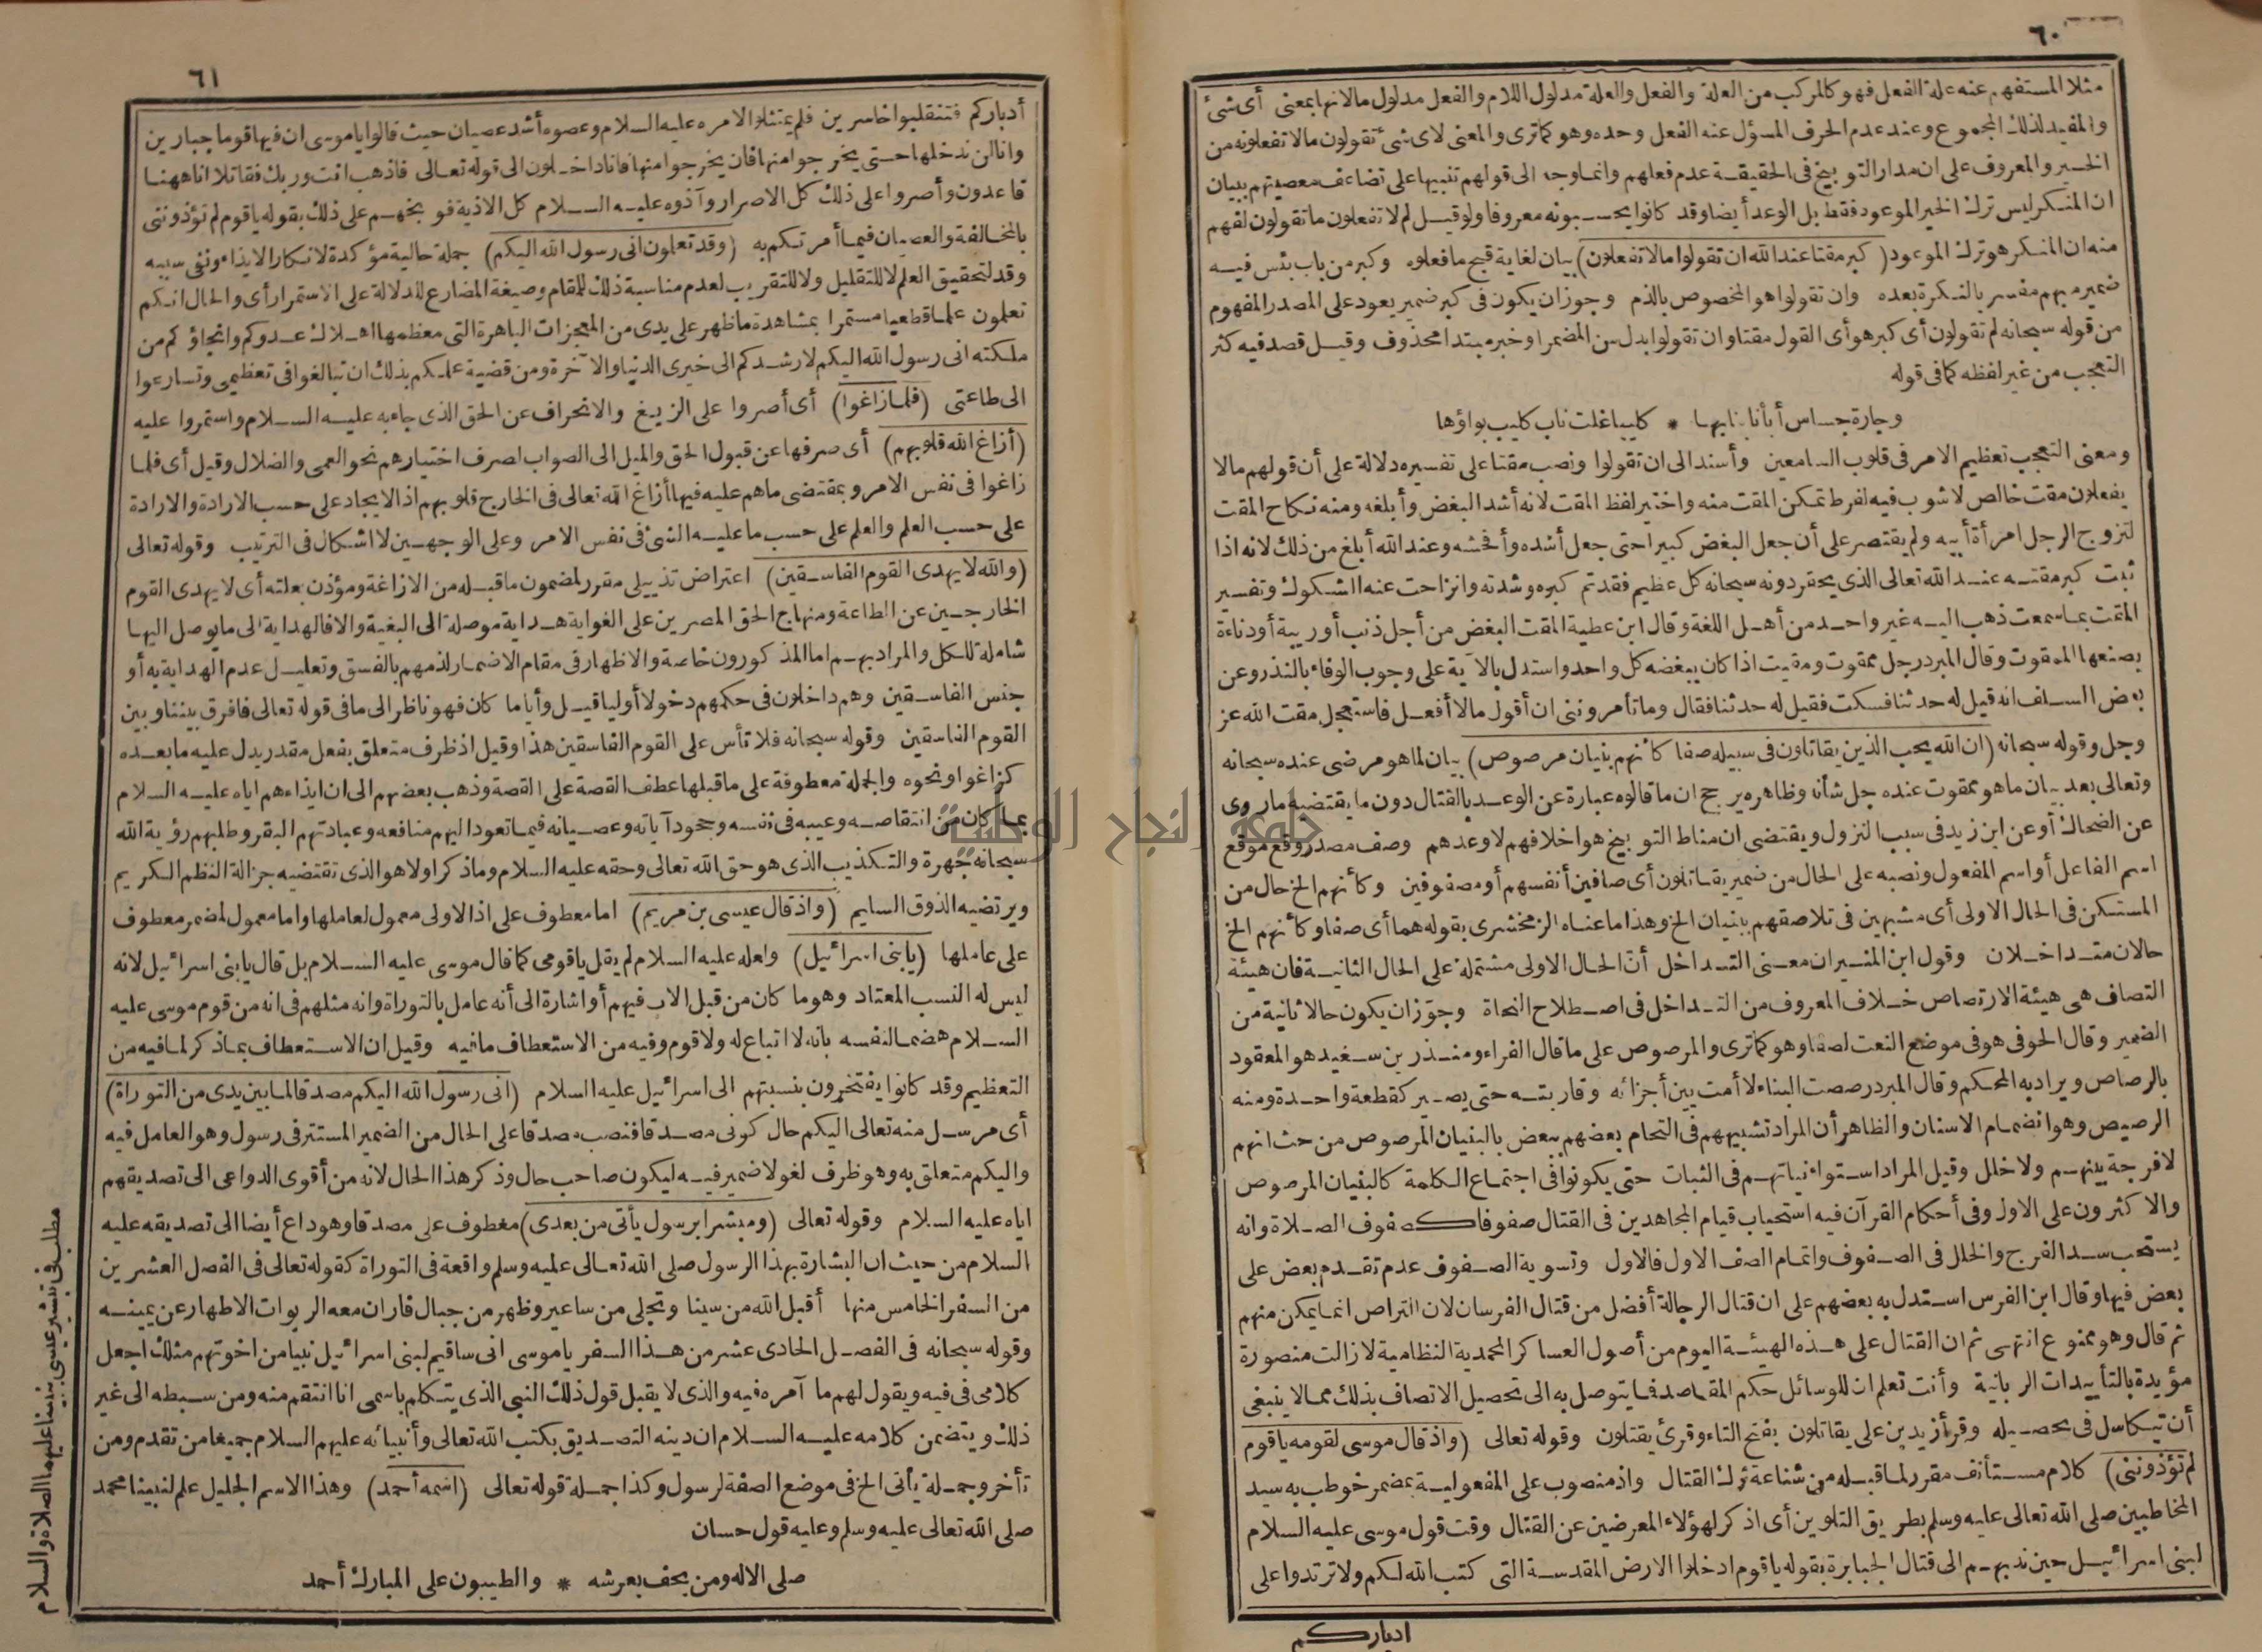 ٦٠
مثلا المستفهم عنه علة الفعل فهو كالمركب من العلة والفعل والعلة مدلول اللام والفعل مدلول ما لانها بمعنى أى شئ
والمفيد لذلك المجموع وعند عدم الحرف المسؤل عنه الفعل وحده وهو كما ترى والمعنى لاى شئ تقولون ما لا تفعلونه من
الخير والمعروف على ان مدار التوبيخ فى الحقيقة عدم فعلهم وانما وجه الى قولهم تنبيها على تضاعف معصيتهم ببيان
ان المنكر ليس ترك الخير الموعود فقط بل الوعد أيضا وقد كانوا يحسبونه معروفا ولو قيل لم لا تفعلون ما تقولون لفهم
منه ان المنكر هو ترك الموعود (كبر مقتا عند الله ان تقولوا ما لا تفعلون) بيان لغاية قبح ما فعلوه وكبر من باب بئس فيه
ضمير مبهم مفسر بالنكرة بعده وان تقولوا هو المخصوص بالذم وجوز ان يكون فى كبر ضمير يعود على المصدر المفهوم
من قوله سبحانه لم تقولون أى كبر هو أى القول مقتا وان تقولوا بدل من المضمر او خبر مبتدا محذوف وقيل قصد فيه كثر
التعجب من غير لفظه كما فى قوله
وجارة جساس أبأنا بنابها * كليبا غلت ناب كليب بواؤها
ومعنى التعجب تعظيم الامر فى قلوب السامعين وأسند الى ان تقولوا ونصب مقتا على تفسيره دلالة على أن قولهم ما لا
يفعلون مقت خالص لا شوب فيه لفرط تمكن المقت منه واختير لفظ المقت لانه أشد البغض وأبلغه ومنه نكاح المقت
لتزوج الرجل امرأة أبيه ولم يقتصر على أن جعل البغض كبيرا حتى جعل أشده وأفحشه وعند الله أبلغ من ذلك لانه اذا
ثبت كبر مقته عند الله تعالى الذى يحقر دونه سبحانه كل عظيم فقد تم كبره وشدته وانزاحت عنه الشكوك وتفسير
المقت بما سمعت ذهب اليه غير واحد من أهل اللغة وقال ابن عطية المقت البغض من أجل ذنب أو ريبة أو دناءة
يصنعها الممقوت وقال المبرد رجل ممقوت ومقيت اذا كان يبغضه كل واحد واستدل بالآية على وجوب الوفاء بالنذر وعن
بعض السلف انه قيل له حدثنا فسكت فقيل له حدثنا فقال وما تأمروننى ان أقول ما لا أفعل فاستعجل مقت الله عز
وجل وقوله سبحانه (ان الله يحب الذين يقاتلون فى سبيله صفا كأنهم بنيان مرصوص) بيان لما هو مرضى عنده سبحانه
وتعالى بعد بيان ما هو ممقوت عنده جل شأنه وظاهره يرجح ان ما قالوه عبارة عن الوعد بالقتال دون ما يقتضيه ما روى
عن الضحاك أو عن ابن زيد فى سبب النزول ويقتضى ان مناط التوبيخ هو اخلافهم لا وعدهم وصف مصدر وقع موقع
اسم الفاعل أو اسم المفعول ونصبه على الحال من ضمير يقاتلون أى صافين أنفسهم أو مصفوفين وكأنهم الخ حال من
المستكن فى الحال الاولى أى مشبهين فى تلاصقهم ببنيان الخ وهذا ما عناه الزمخشرى بقوله هما أى صفا وكأنهم الخ
حالان متداخلان وقول ابن المنير ان معنى التداخل أن الحال الاولى مشتملة على الحال الثانية فان هيئة
التصاف هى هيئة الارتصاص خلاف المعروف من التداخل فى اصطلاح النحاة وجوز ان يكون حالا ثانية من
الضمير وقال الحوفى هو فى موضع النعت لصفا وهو كما ترى والمرصوص على ما قال الفراء ومنذر بن سعيد هو المعقود
بالرصاص ويراد به المحكم وقال المبرد رصصت البناء لاأمت بين أجزائه وقاربته حتى يصير كقطعة واحدة ومنه
الرصيص وهو انضمام الاسنان والظاهر أن المراد تشبيههم فى التحام بعضهم ببعض بالبنيان المرصوص من حيث انهم
لا فرجة بينهم ولا خلل وقيل المراد استواء نياتهم فى الثبات حتى يكونوا فى اجتماع الكلمة كالبنيان المرصوص
والاكثرون على الاول وفى أحكام القرآن فيه استحباب قيام المجاهدين فى القتال صفوفا كصفوف الصلاة وانه
يستحب سد الفرج والخلل فى الصفوف واتمام الصف الاول فالاول وتسوية الصفوف عدم تقدم بعض على
بعض فيها وقال ابن الفرس استدل به بعضهم على ان قتال الرجالة أفضل من قتال الفرسان لان التراص انما يمكن منهم
ثم قال وهو ممنوع انتهى ثم ان القتال على هذه الهيئة اليوم من أصول العساكر المحمدية النظامية لازالت منصورة
مؤيدة بالتأييدات الربانية وأنت تعلم ان للوسائل حكم المقاصد فما يتوصل به الى تحصيل الاتصاف بذلك مما لا ينبغى
أن يتكاسل فى تحصيله وقرأ زيد بن على يقاتلون بفتح التاء وقرئ يقتلون وقوله تعالى (واذ قال موسى لقومه يا قوم
لم تؤذوننى) كلام مستأنف مقرر لما قبله من شناعة ترك القتال واذ منصوب على المفعولية بمضمر خوطب به سيد
المخاطبين صلى الله تعالى عليه وسلم بطريق التلوين أى اذكر لهؤلاء المعرضين عن القتال وقت قول موسى عليه السلام
لبنى اسرائيل حين ندبهم الى قتال الجبابرة بقوله يا قوم ادخلوا الارض المقدسة التى كتب الله لكم ولا ترتدوا على
ادباركم
٦١
أدباركم فتنقلبوا خاسرين فلم يمتثلوا لامره عليه السلام وعصوه أشد عصيان حيث قالوا يا موسى ان فيها قوما جبارين
وانا لن ندخلها حتى يخرجوا منها فان يخرجوا منها فانا داخلون الى قوله تعالى فاذهب انت وربك فقاتلا انا ههنا
قاعدون وأصروا على ذلك كل الاصرار وآذوه عليه السلام كل الاذية فوبخهم على ذلك بقوله يا قوم لم تؤذوننى
بالمخالفة والعصيان فيما أمرتكم به (وقد تعلمون انى رسول الله اليكم) جملة حالية مؤكدة لانكار الايذاء ونفى سببه
وقد لتحقيق العلم لا للتقليل ولا للتقريب لعدم مناسبة ذلك للمقام وصيغة المضارع للدلالة على الاستمرار أى والحال انكم
تعلمون علما قطعيا مستمرا بمشاهدة ما ظهر على يدى من المعجزات الباهرة التى معظمها اهلاك عدوكم وانجاؤكم من
ملكته انى رسول الله اليكم لارشدكم الى خيرى الدنيا والآخرة ومن قضية علمكم بذلك ان تبالغوا فى تعظيمى وتسارعوا
الى طاعتى (فلما زاغوا) أى أصروا على الزيغ والانحراف عن الحق الذى جاء به عليه السلام واستمروا عليه
(أزاغ الله قلوبهم) أى صرفها عن قبول الحق والميل الى الصواب لصرف اختيارهم نحو العمى والضلال وقيل أى فلما
زاغوا فى نفس الامر وبمقتضى ما هم عليه فيها أزاغ الله تعالى فى الخارج قلوبهم اذ الايجاد على حسب الارادة والارادة
على حسب العلم والعلم على حسب ما عليه الشئ فى نفس الامر وعلى الوجهين لا اشكال فى الترتيب وقوله تعالى
(والله لا يهدى القوم الفاسقين) اعتراض تذييلى مقرر لمضمون ما قبله من الازاغة ومؤذن بعلته أى لا يهدى القوم
الخارجين عن الطاعة ومنهاج الحق المصرين على الغواية هداية موصلة الى البغية والا فالهداية الى ما يوصل اليها
شاملة للكل والمراد بهم اما المذكورون خاصة والاظهار فى مقام الاضمار لذمهم بالفسق وتعليل عدم الهداية به أو
جنس الفاسقين وهم داخلون فى حكمهم دخولا أوليا قيل وأياما كان فهو ناظر الى ما فى قوله تعالى فافرق بيننا وبين
القوم الفاسقين وقوله سبحانه فلا تأس على القوم الفاسقين هذا وقيل اذ ظرف متعلق بفعل مقدر يدل عليه ما بعده
كزاغوا ونحوه والجملة معطوفة على ما قبلها عطف القصة على القصة وذهب بعضهم الى ان ايذاءهم اياه عليه السلام
بما كان من انتقاصه وعيبه فى نفسه وجحود آياته وعصيانه فيما تعود اليهم منافعه وعبادتهم البقر وطلبهم رؤية الله
سبحانه جهرة والتكذيب الذى هو حق الله تعالى وحقه عليه السلام وما ذكر اولا هو الذى تقتضيه جزالة النظم الكريم
ويرتضيه الذوق السليم (واذ قال عيسى بن مريم) اما معطوف على اذ الاولى معمول لعاملها واما معمول لمضمر معطوف
على عاملها (يا بنى اسرائيل) ولعله عليه السلام لم يقل يا قومى كما قال موسى عليه السلام بل قال يا بنى اسرائيل لانه
ليس له النسب المعتاد وهو ما كان من قبل الاب فيهم أو اشارة الى أنه عامل بالتوراة وانه مثلهم فى انه من قوم موسى عليه
السلام هضما لنفسه بانه لا اتباع له ولا قوم وفيه من الاستعطاف ما فيه وقيل ان الاستعطاف بما ذكر لما فيه من
التعظيم وقد كانوا يفتخرون بنسبتهم الى اسرائيل عليه السلام (انى رسول الله اليكم مصدقا لما بين يدى من التوراة)
أى مرسل منه تعالى اليكم حال كونى مصدقا فنصب مصدقا على الحال من الضمير المستتر فى رسول وهو العامل فيه
واليكم متعلق به وهو ظرف لغو لا ضمير فيه ليكون صاحب حال وذكر هذا الحال لانه من أقوى الدواعى الى تصديقهم
اياه عليه السلام وقوله تعالى (ومبشرا برسول يأتى من بعدى) معطوف على مصدقا وهو داع أيضا الى تصديقه عليه
السلام من حيث ان البشارة بهذا الرسول صلى الله تعالى عليه وسلم واقعة فى التوراة كقوله تعالى فى الفصل العشرين
من السفر الخامس منها أقبل الله من سينا وتجلى من ساعير وظهر من جبال فاران معه الربوات الاطهار عن يمينه
وقوله سبحانه فى الفصل الحادى عشر من هذا السفر يا موسى انى سأقيم لبنى اسرائيل نبيا من اخوتهم مثلك اجعل
كلامى فى فيه ويقول لهم ما آمره فيه والذى لا يقبل قول ذلك النبى الذى يتكلم باسمى انا انتقم منه ومن سبطه الى غير
ذلك ويتضمن كلامه عليه السلام ان دينه التصديق بكتب الله تعالى وأنبيائه عليهم السلام جميعا من تقدم ومن
تأخر وجملة يأتى الخ فى موضع الصفة لرسول وكذا جملة قوله تعالى (اسمه أحمد) وهذا الاسم الجليل علم لنبينا محمد
صلى الله تعالى عليه وسلم وعليه قول حسان
صلى الاله ومن يحف بعرشه * والطيبون على المبارك أحمد
مطلب فى تبشير عيسى بنبينا عليهما الصلاة والسلام
جامعة النجاح الوطنية